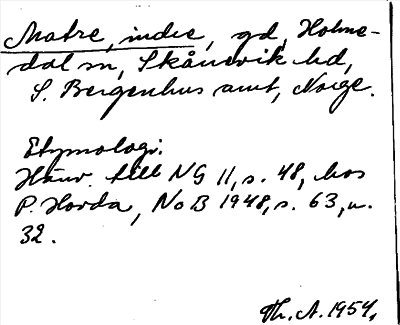 Matre, indre, gd, Holme-
dal sn, Skånevik hd,
S. Bergenhus amt, Norge.
Etymologi.
Hänv. till NG 11, s. 48, hos
P. Hovda, NoB 1948, s. 63, n.
32.
Th. A. 1954.